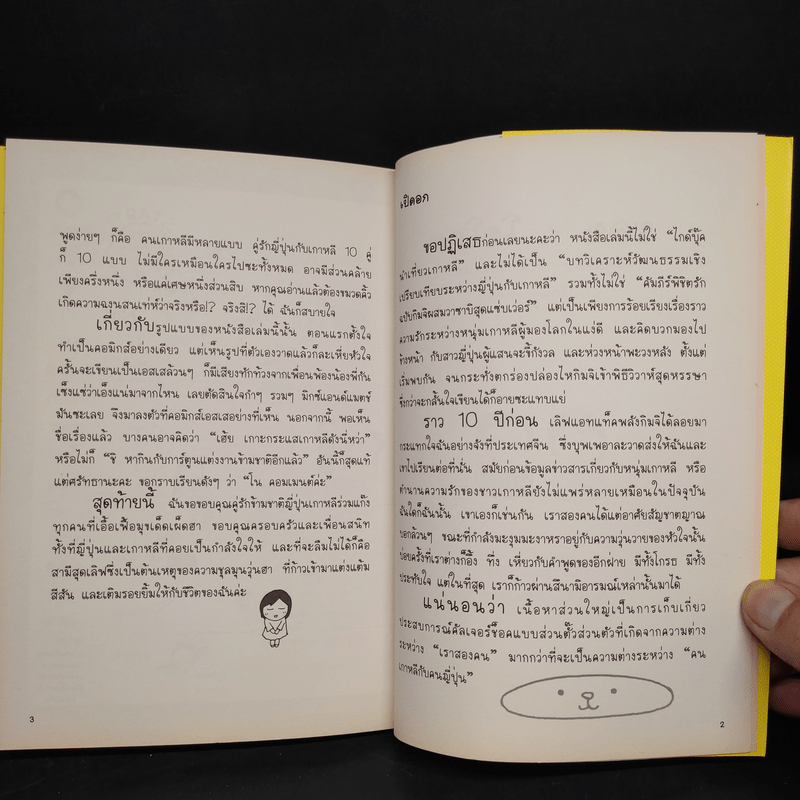 เปิดอก
ขอปฏิเสธก่อนเลยนะคะว่า หนังสือเล่มนี้ไม่ใช่ "ไกด์บุ๊ค
นำเที่ยวเกาหลี" และไม่ได้เป็น "บทวิเคราะห์วัฒนธรรมเชิง
เปรียบเทียบระหว่างญี่ปุ่นกับเกาหลี" รวมทั้งไม่ใช่ "คัมภีร์พิชิตรัก
ฉบับกิมจิผสมวาซาบิสุดแซ่บเว่อร์" แต่เป็นเพียงการร้อยเรียงเรื่องราว
ความรักระหว่างหนุ่มเกาหลีผู้มองโลกในแง่ดี และคิดบวกมองไป
ข้างหน้า กับสาวญี่ปุ่นผู้แสนจะขี้กังวล และห่วงหน้าพะวงหลัง ตั้งแต่
เริ่มพบกัน จนกระทั่งตกร่องปล่องไหกิมจิเข้าพิธีวิวาห์สุดหรรษา
ซึ่งกว่าจะกลั้นใจเขียนได้ก็อายซะแทบแย่
ราว 10 ปีก่อน เลิฟแอทแท็คพลังกิมจิได้ลอยมา
กระแทกใจฉันอย่างจังที่ประเทศจีน ซึ่งบุพเพอาละวาดส่งให้ฉันและ
เขาไปเรียนต่อที่นั่น สมัยก่อนข้อมูลข่าวสารเกี่ยวกับหนุ่มเกาหลี หรือ
ตำนานความรักของชาวเกาหลียังไม่แพร่หลายเหมือนในปัจจุบัน
ฉันใดก็ฉันนั้น เขาเองก็เช่นกัน เราสองคนได้แต่อาศัยสัญชาตญาณ
บอกล้วนๆ ขณะที่กำลังมะงุมมะงาหราอยู่กับความวุ่นวายของหัวใจนั้น
บ่อยครั้งที่เราต่างก็อึ้ง ทึ่ง เหี่ยวกับคำพูดของอีกฝ่าย มีทั้งโกรธ มีทั้ง
ประทับใจ แต่ในที่สุด เราก็ก้าวผ่านสึนามิอารมณ์เหล่านั้นมาได้
แน่นอนว่า เนื้อหาส่วนใหญ่เป็นการเก็บเกี่ยว
ประสบการณ์คัลเจอร์ช็อคแบบส่วนตั๊วส่วนตัวที่เกิดจากความต่าง
ระหว่าง "เราสองคน" มากกว่าที่จะเป็นความต่างระหว่าง "คน
เกาหลีกับคนญี่ปุ่น"
2
พูดง่ายๆ ก็คือ คนเกาหลีมีหลายแบบ คู่รักญี่ปุ่นกับเกาหลี 10 คู่
ก็ 10 แบบ ไม่มีใครเหมือนใครไปซะทั้งหมด อาจมีส่วนคล้าย
เพียงครึ่งหนึ่ง หรือแค่เศษหนึ่งส่วนสิบ หากคุณอ่านแล้วต้องขมวดคิ้ว
เกิดความฉงนสนเท่ห์ว่าจริงหรือ!? จริงสิ!? ได้ ฉันก็สบายใจ
เกี่ยวกับรูปแบบของหนังสือเล่มนี้นั้น ตอนแรกตั้งใจ
ทำเป็นคอมิกส์อย่างเดียว แต่เห็นรูปที่ตัวเองวาดแล้วก็ละเหี่ยหัวใจ
ครั้นจะเขียนเป็นเอสเสล้วนๆ ก็มีเสียงทักท้วงจากเพื่อนพ้องน้องพี่กัน
เซ็งแซ่ว่าเอ็งแน่มาจากไหน เลยตัดสินใจกำๆ รวมๆ มิกซ์แอนด์แมตช์
มันซะเลย จึงมาลงตัวที่คอมิกส์เอสเสอย่างที่เห็น นอกจากนี้ พอเห็น
ชื่อเรื่องแล้ว บางคนอาจคิดว่า "เฮ้ย เกาะกระแสเกาหลีดังนี่หว่า"
หรือไม่ก็ "ชิ หากินกับการ์ตูนแต่งงานข้ามชาติอีกแล้ว" อันนี้ก็สุดแท้
แต่ศรัทธานะคะ ขอกราบเรียนดังๆ ว่า "โน คอมเมนต์ค่ะ"
สุดท้ายนี้ ฉันขอขอบคุณคู่รักข้ามชาติญี่ปุ่นเกาหลีร่วมแก๊ง
ทุกคนที่เอื้อเฟื้อมุขเด็ดเผ็ดฮา ขอบคุณครอบครัวและเพื่อนสนิท
ทั้งที่ญี่ปุ่นและเกาหลีที่คอยเป็นกำลังใจให้ และที่จะลืมไม่ได้ก็คือ
สามีสุดเลิฟซึ่งเป็นต้นเหตุของความชุลมุนวุ่นฮา ที่ก้าวเข้ามาแต่งแต้ม
สีสัน และเติมรอยยิ้มให้กับชีวิตของฉันค่ะ
3